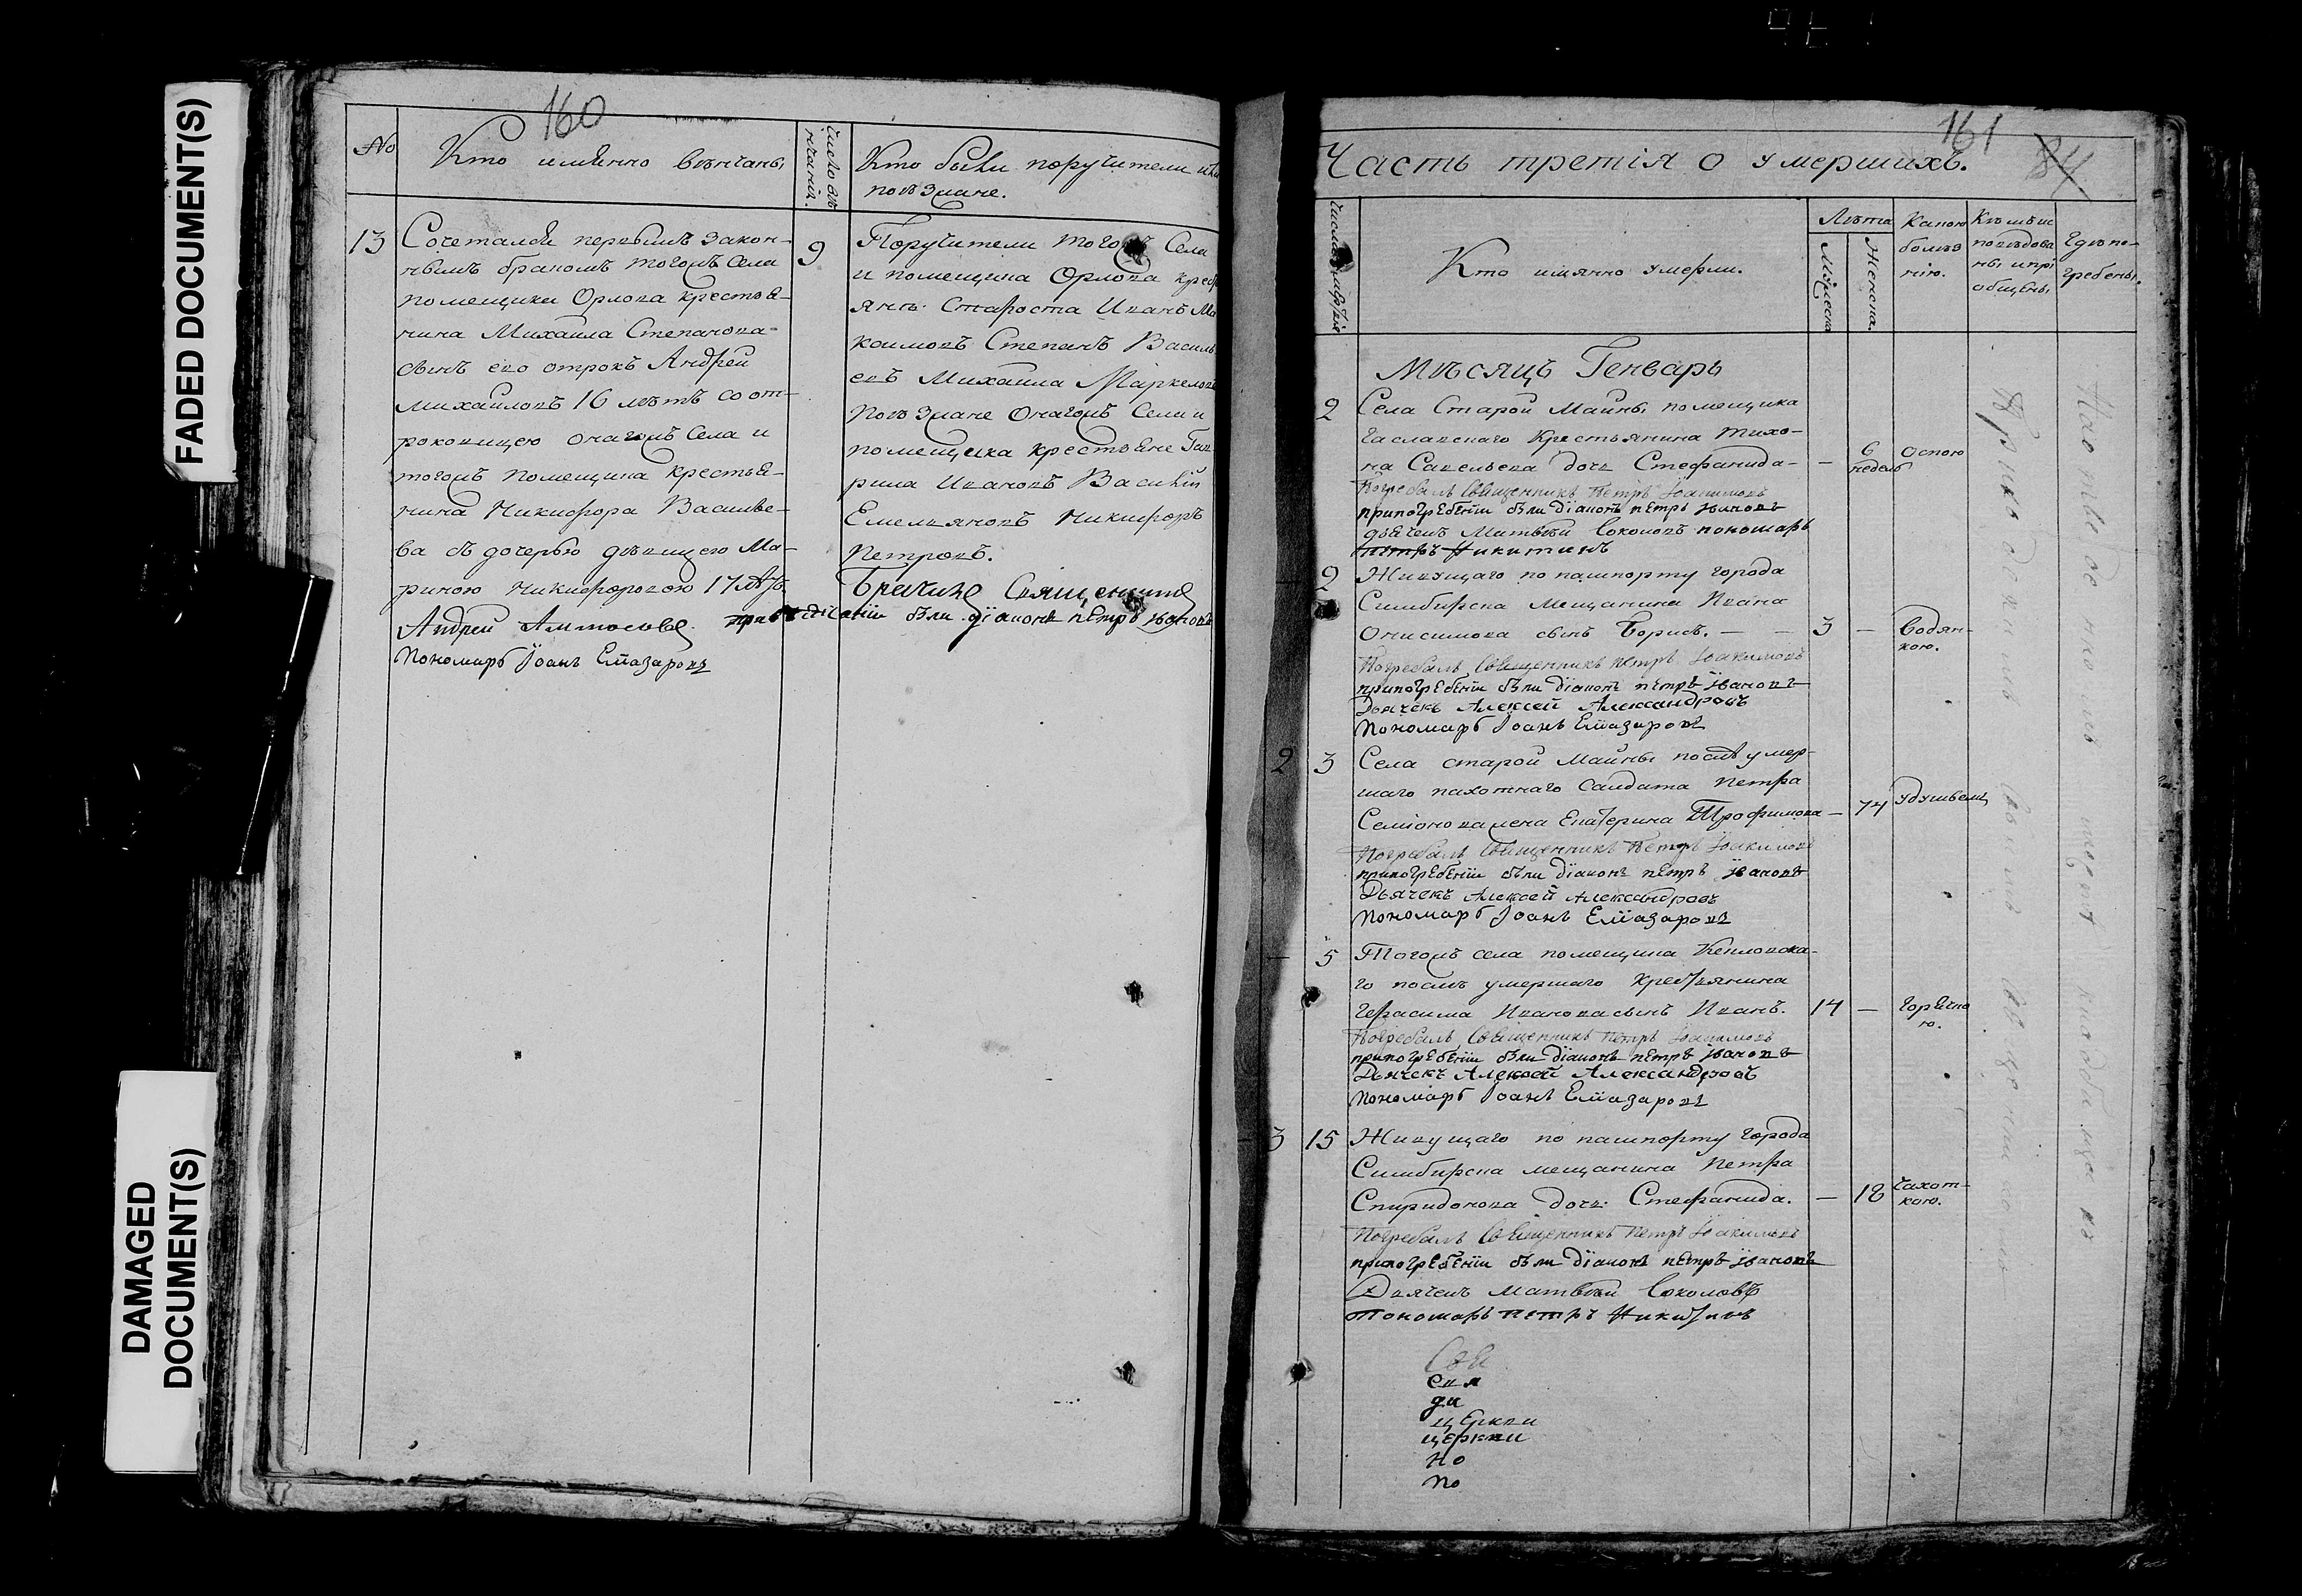 FADED DOCUMENT(S)
DAMAGED
DOCUMENT(S)
160
№
Кто имянно венчаны
Кто были поручители и
поезжане.
13
Сочетался первымъ закон-
нымъ бракомъ тогожъ села
помещика Орлова крестья-
нина Михаила Степанова
сынъ его отрокъ Андрей
Михайловъ 16 летъ со от-
роковицею онагожъ села и
тогожъ помещика крестья-
нина Никифора Василье-
ва съ дочерью девицею Ма-
риною Никифоровою 17
9
Поручители тогожъ Села
и помещика Орлова крест
янъ: Староста Иванъ Ма
каимовъ Степанъ Василь
евъ Михаила Маркелов
поезжане онагожъ Села и
помещика крестьяне Гав
рила Ивановъ Василий
Емельяновъ Никифоръ
Петровъ.
Венчалъ Священникъ
Андрей Аммосовъ были диаконъ петръ ивановъ
Пономарь Иоанъ Елиазаровъ
161
84
Часть третія о умершихъ.
Кто имянно умерли.
Лѣта
Мужеска
Женска.
Какою
болѣз
нію.
Къ мѣс
повѣдова
ны и прі
общены
Гдѣ по-
гребены.
Мѣсяцъ Генварь
2
Села Старой Майны помещика
крестьянина Тихо-
на Савельева дочь Стефанида
6
недель
Оспою
Погребалъ Священникъ Петръ Иоакимовъ
при погребении были диаконъ петръ ивановъ
дьячекъ Матвей Соколовъ пономарь
петръ Никитинъ
2
Живущаго по пашпорту города
Симбирска мещанина Ивана
Онисимова сынъ Борисъ.
3
Водян-
кою.
Погребалъ Священникъ Петръ Иоакимовъ
при погребении были диаконъ петръ ивановъ
Дьячекъ Алексей Александровъ
Пономарь Иоанъ Елиазаровъ
2
3
Села старой Майны после умер-
шаго пахотнаго салдата Петра
Семионова жена Екатерина Трофимова
74
Удушьемъ
Погребалъ Священникъ Петръ Иоакимовъ
при погребении были диаконъ петръ ивановъ
Дьячекъ Алексей Александровъ
Пономарь Иоанъ Елиазаровъ
5
Тогожъ села помещика
го после умершаго крестьянина
Герасима Иванова сынъ Иванъ.
14
Горячко
ю.
Погребалъ Священникъ Петръ Иоакимовъ
при погребении были диаконъ петръ ивановъ
Дьячекъ Алексей Александровъ
Пономарь Иоанъ Елиазаровъ
3
15
Живущаго по пашпорту города
Симбирска мещанина Петра
Спиридонова дочь Стефанида.
18
Чахот-
кою.
Погребалъ Священникъ Петръ Иоакимовъ
при погребении были диаконъ петръ ивановъ
Дьячекъ Матвей Соколовъ
Пономарь петръ Никитинъ
Свя
свя
ди
церкви
церкви
но
по